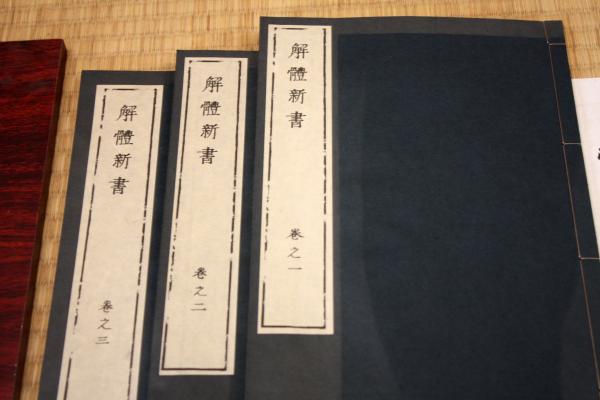 解體新書
卷之一
解體新書
卷之二
解體新書
卷之三